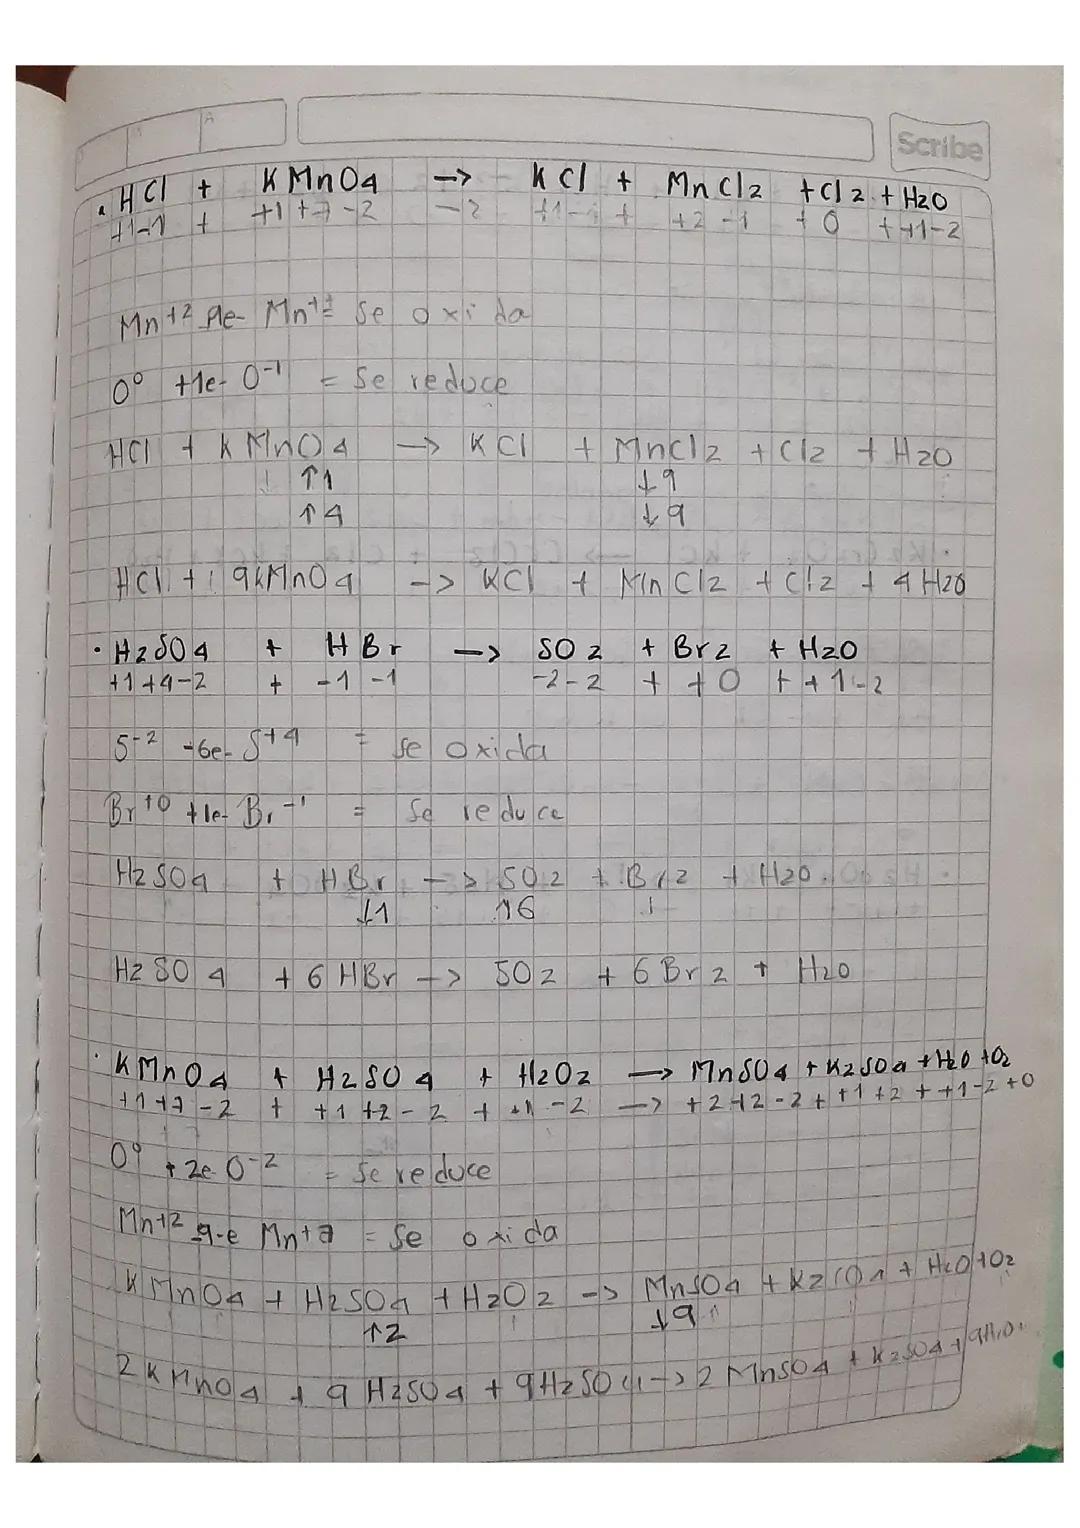 Scribe
. HCl + KMnO4 -> KCl + MnCl2 + Cl2 + H2O
+1-1 + +1+7-2 -2 +1-1 + +2-1 + 0 + +1-2
Mn+2 9e- Mn+7 = Se oxida
O0 +1e- O-1 = Se reduce
HCl + KMnO4 -> KCl + MnCl2 + Cl2 + H2O
↑1 ↓9
↑4 ↓9
HCl + 9KMnO4 -> KCl + MnCl2 + Cl2 + 4H2O
· H2SO4 + HBr -> SO2 + Br2 + H2O
+1+4-2 + -1-1 -2-2 + +0 + +1-2
S-2 -6e- S+4 = Se oxida
Br+0 +1e- Br-1 = Se reduce
H2SO4 + HBr -> SO2 + Br2 + H2O
↓1 ↑6
H2SO4 + 6HBr -> SO2 + 6Br2 + H2O
· KMnO4 + H2SO4 + H2O2 -> MnSO4 + K2SO4 + H2O + O2
+1+7-2 + +1+2-2 + +1-2 -> +2+2-2 + +1+2 + +1-2 +0
O0 +2e- O-2 = Se reduce
Mn+2 9-e Mn+7 = Se oxida
KMnO4 + H2SO4 + H2O2 -> MnSO4 + K2SO4 + H2O + O2
↑2 ↓9
2KMnO4 + 9H2SO4 + 9H2SO4 -> 2MnSO4 + K2SO4 + 9H2O